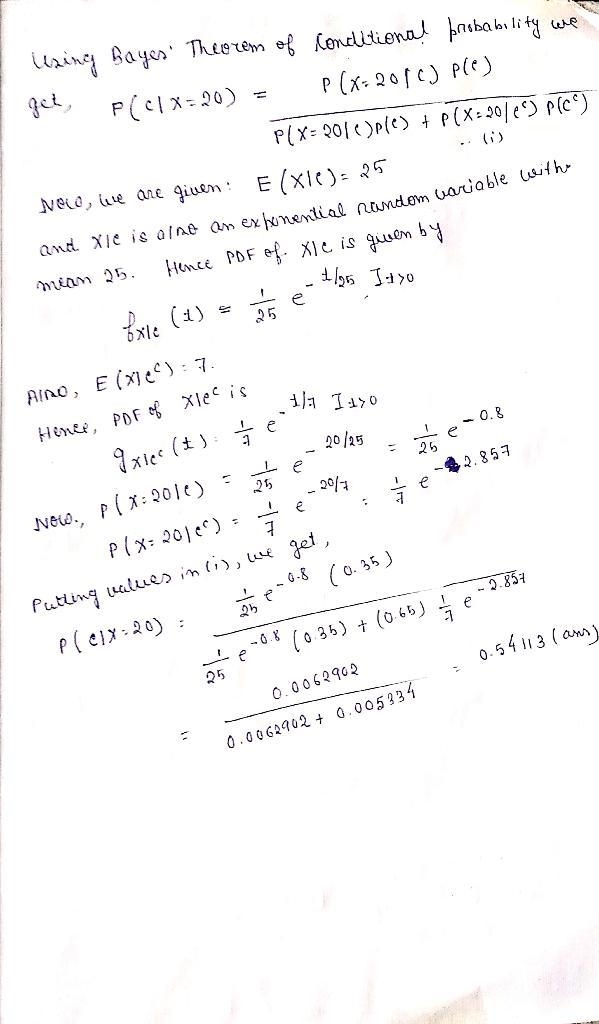 Using Bayes' Theorem of Conditional probability we
get, P(C|X=20) = P(X=20|C) P(C) / P(X=20|C)P(C) + P(X=20|C^c) P(C^c)
.. (i)
Now, we are given: E(X|C) = 25
and X|C is also an exponential random variable with
mean 25. Hence PDF of X|C is given by
f_{X|C} (t) = 1/25 e^{-t/25} I_{t>0}
Also, E(X|C^c) = 7.
Hence, PDF of X|C^c is
g_{X|C^c} (t) = 1/7 e^{-t/7} I_{t>0}
Now., P(X=20|C) = 1/25 e^{-20/25} = 1/25 e^{-0.8}
P(X=20|C^c) = 1/7 e^{-20/7} = 1/7 e^{-2.857}
Putting values in (i), we get,
P(C|X=20) = 1/25 e^{-0.8} (0.35) / 1/25 e^{-0.8} (0.35) + (0.65) 1/7 e^{-2.857}
= 0.0062902 / 0.0062902 + 0.005334 = 0.54113 (ans)